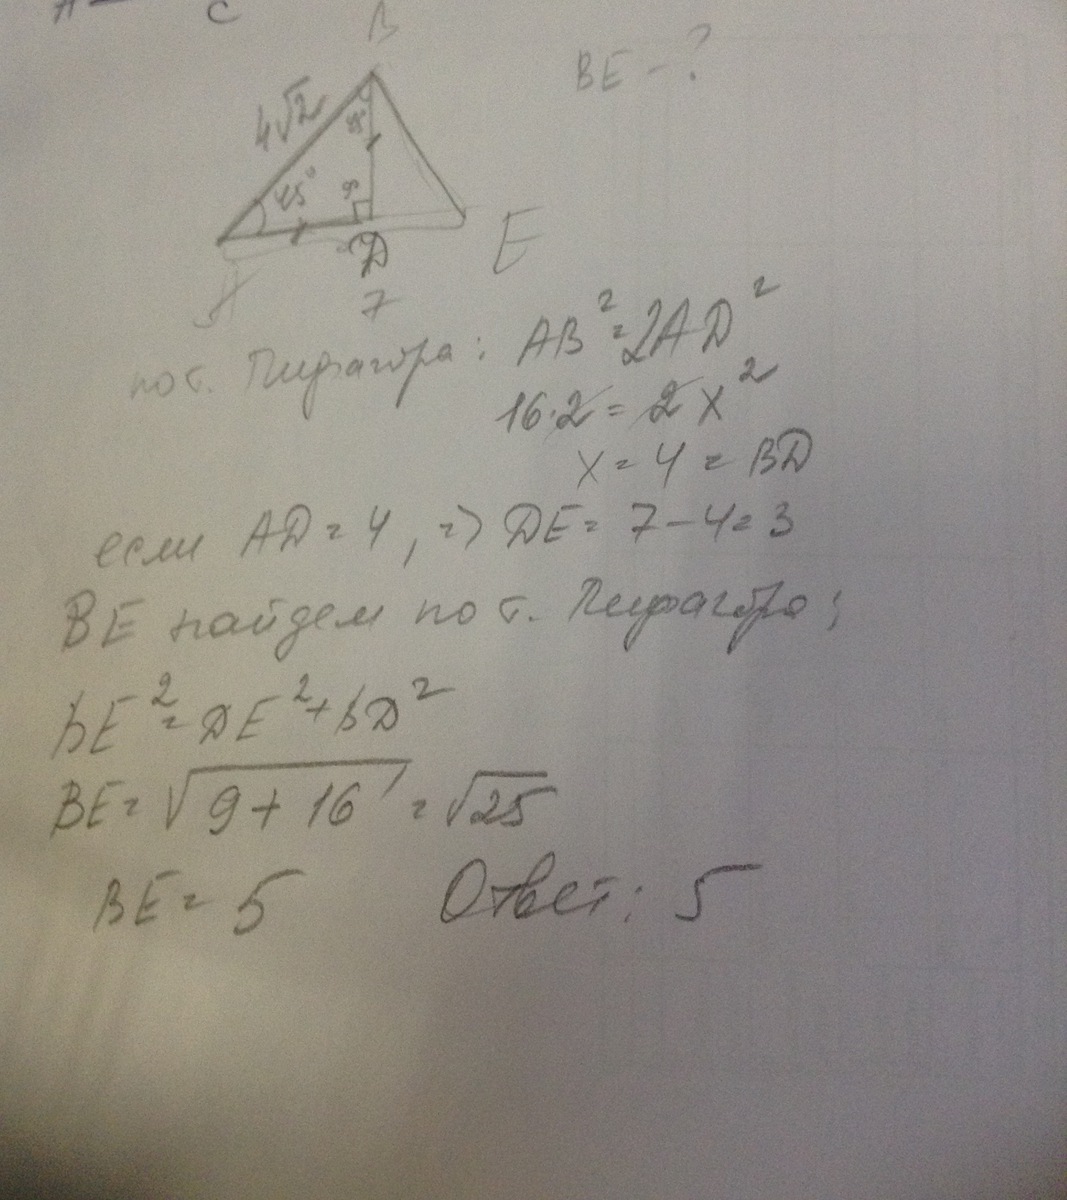 A C
B
BE - ?
4√2
45°
45°
9
A D E
7
по т. Пифагора: AB² = 2AD²
16·2 = 2x²
x = 4 = BD
если AD = 4, => DE = 7 - 4 = 3
BE найдем по т. Пифагора;
BE² = DE² + BD²
BE = √9 + 16 = √25
BE = 5 Ответ: 5